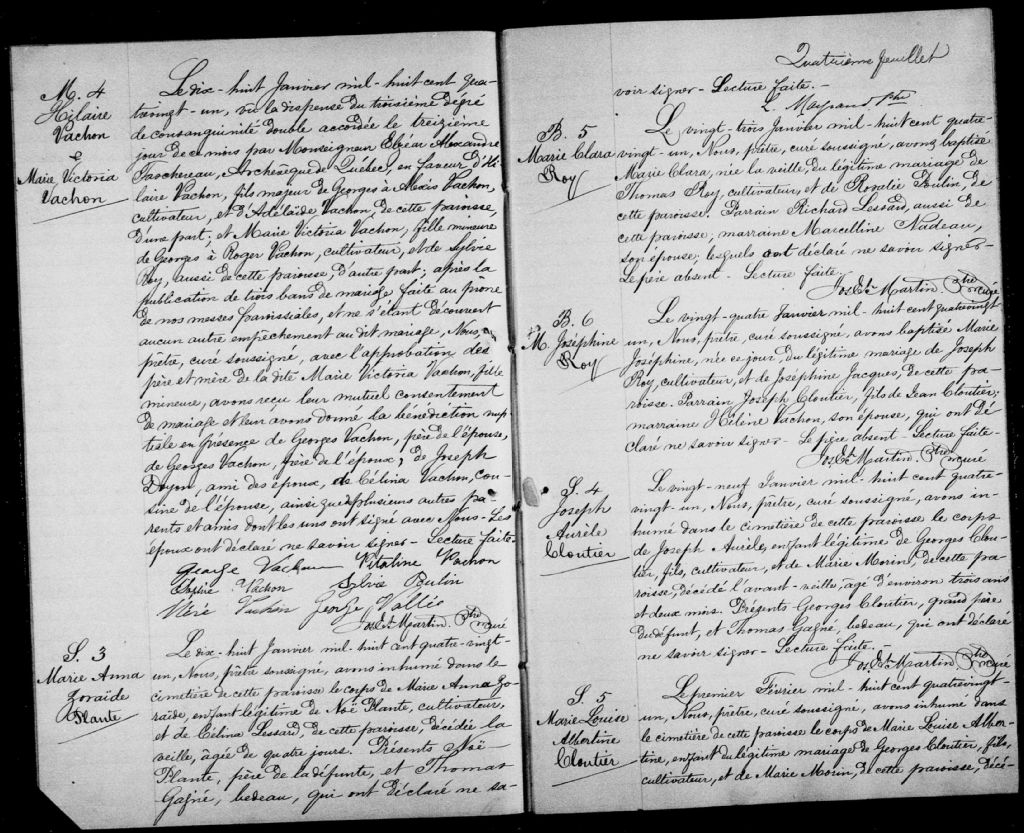 M. 4
Hilaire
Vachon
&
Marie Victoria
Vachon
Le dix-huit Janvier mil-huit cent qua-
trevingt-un, vu la dispense du troisième degré
de consanguinité double accordée le treizième
jour de ce mois par Monseigneur Elzéar Alexandre
Taschereau, Archevêque de Québec, en faveur d'Hi-
laire Vachon, fils majeur de Georges à Alexis Vachon,
cultivateur, et d'Adélaïde Vachon, de cette paroisse,
d'une part; et Marie Victoria Vachon, fille mineure
de Georges à Roger Vachon, cultivateur, et de Sylvie
Roy, aussi de cette paroisse, d'autre part; après la
publication de trois bans de mariage faite au prone
de nos messes paroissiales, et ne s'étant découvert
aucun autre empêchement au dit mariage, Nous,
prêtre, curé soussigné, avec l'approbation des
père et mère de la dite Marie Victoria Vachon, fille
mineure, avons reçu leur mutuel consentement
de mariage et leur avons donné la bénédiction nup-
tiale en présence de Georges Vachon, père de l'épouse,
de Georges Vachon, frère de l'époux, de Joseph
Doyon, ami des époux, de Célina Vachon, cou-
sine de l'épouse, ainsi que de plusieurs autres pa-
rents et amis dont les uns ont signé avec Nous - Les
époux ont déclaré ne savoir signer - Lecture faite.
George Vachon Vitaline Vachon
Vachon Sylvie Poulin
Vachon George Vallée
Jos. Ed. Martin. Ptre curé
S. 3
Marie Anna
Zoraïde
Plante
Le dix-huit Janvier mil-huit cent quatre-vingt-
un, Nous, prêtre soussigné, avons inhumé dans le
cimetière de cette paroisse le corps de Marie Anna Zo-
raïde, enfant légitime de Noë Plante, cultivateur,
et de Célina Lessard, de cette paroisse, décédée la
veille, âgée de quatre jours. Présents Noë
Plante, père de la défunte, et Thomas
Gagné, bedeau, qui ont déclaré ne sa-
Quatrième feuillet
voir signer - Lecture faite. -
Ptre
B. 5
Marie Clara
Roy
Le vingt-trois Janvier mil-huit cent quatre-
vingt-un, Nous, prêtre, curé soussigné, avons baptisé
Marie Clara, née la veille, du légitime mariage de
Thomas Roy, cultivateur, et de Rosalie Poulin, de
cette paroisse. Parrain Richard Lessard, aussi de
cette paroisse, marraine Marcelline Nadeau,
son épouse; lesquels ont déclaré ne savoir signer -
Le père absent - Lecture faite.
Jos. Ed. Martin Ptre curé
B. 6
M. Joséphine
Roy
Le vingt-quatre Janvier mil-huit cent quatrevingt
un, Nous, prêtre, curé soussigné, avons baptisé Marie
Joséphine, née ce jour, du légitime mariage de Joseph
Roy, cultivateur, et de Joséphine Jacques, de cette pa-
roisse. Parrain Joseph Cloutier, fils de Jean Cloutier;
marraine Hélène Vachon, son épouse, qui ont dé-
claré ne savoir signer - Le père absent - Lecture faite -
Jos. Ed. Martin. Ptre curé
S. 4
Joseph
Aurèle
Cloutier
Le vingt-neuf Janvier mil-huit cent quatre-
vingt-un, Nous, prêtre, curé soussigné, avons in-
humé dans le cimetière de cette paroisse le corps
de Joseph Aurèle, enfant légitime de Georges Clou-
tier, fils, cultivateur, et de Marie Morin, de cette pa-
roisse, décédé l'avant-veille, âgé d'environ trois ans
et deux mois. Présents Georges Cloutier, grand père
du défunt, et Thomas Gagné, bedeau, qui ont déclaré
ne savoir signer - Lecture faite. -
Jos. Ed. Martin Ptre curé
S. 5
Marie Louise
Albertine
Cloutier
Le premier Février mil-huit cent quatrevingt-
un, Nous, prêtre, curé soussigné, avons inhumé dans
le cimetière de cette paroisse le corps de Marie Louise Alber-
tine, enfant du légitime mariage de Georges Cloutier, fils,
cultivateur, et de Marie Morin, de cette paroisse, décé-